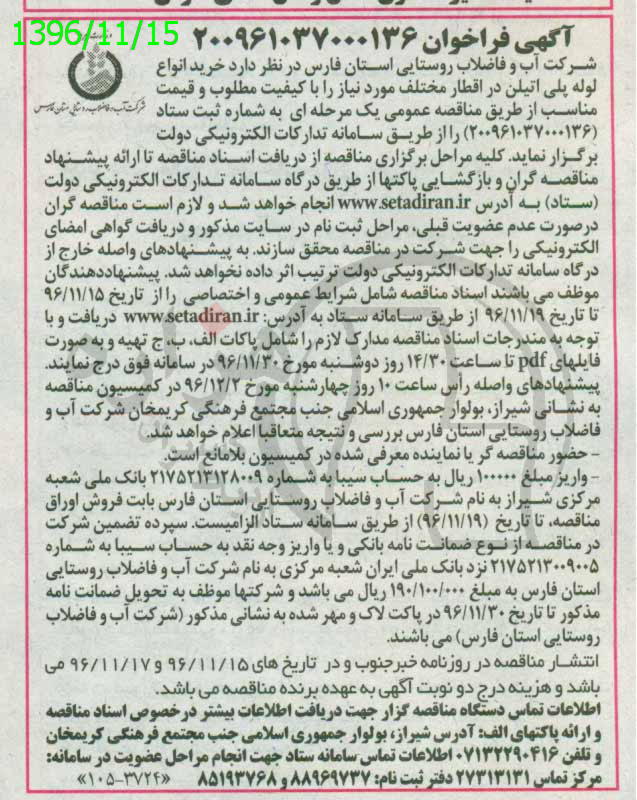 1396/11/15
آگهی فراخوان ۲۰۰۹۶۱۰۳۷۰۰۰۱۳۶
شرکت آب و فاضلاب روستایی استان فارس
شرکت آب و فاضلاب روستایی استان فارس در نظر دارد خرید انواع
لوله پلی اتیلن در اقطار مختلف مورد نیاز را با کیفیت مطلوب و قیمت
مناسب از طریق مناقصه عمومی یک مرحله ای به شماره ثبت ستاد
(۲۰۰۹۶۱۰۳۷۰۰۰۱۳۶) را از طریق سامانه تدارکات الکترونیکی دولت
برگزار نماید. کلیه مراحل برگزاری مناقصه از دریافت اسناد مناقصه تا ارائه پیشنهاد
مناقصه گران و بازگشایی پاکتها از طریق درگاه سامانه تدارکات الکترونیکی دولت
(ستاد) به آدرس www.setadiran.ir انجام خواهد شد و لازم است مناقصه گران
درصورت عدم عضویت قبلی، مراحل ثبت نام در سایت مذکور و دریافت گواهی امضای
الکترونیکی را جهت شرکت در مناقصه محقق سازند. به پیشنهادهای واصله خارج از
درگاه سامانه تدارکات الکترونیکی دولت ترتیب اثر داده نخواهد شد. پیشنهاددهندگان
موظف می باشند اسناد مناقصه شامل شرایط عمومی و اختصاصی را از تاریخ ۹۶/۱۱/۱۵
تا تاریخ ۹۶/۱۱/۱۹ از طریق سامانه ستاد به آدرس: www.setadiran.ir دریافت و با
توجه به مندرجات اسناد مناقصه مدارک لازم را شامل پاکات الف، ب، ج تهیه و به صورت
فایلهای pdf تا ساعت ۱۴/۳۰ روز دوشنبه مورخ ۹۶/۱۱/۳۰ در سامانه فوق درج نمایند.
پیشنهادهای واصله رأس ساعت ۱۰ روز چهارشنبه مورخ ۹۶/۱۲/۲ در کمیسیون مناقصه
به نشانی شیراز، بولوار جمهوری اسلامی جنب مجتمع فرهنگی کریمخان شرکت آب و
فاضلاب روستایی استان فارس بررسی و نتیجه متعاقبا اعلام خواهد شد.
- حضور مناقصه گر یا نماینده معرفی شده در کمیسیون بلامانع است.
- واریز مبلغ ۱۰۰۰۰۰ ریال به حساب سیبا به شماره ۲۱۷۵۲۱۳۱۲۸۰۰۹ بانک ملی شعبه
مرکزی شیراز به نام شرکت آب و فاضلاب روستایی استان فارس بابت فروش اوراق
مناقصه، تا تاریخ (۹۶/۱۱/۱۹) از طریق سامانه ستاد الزامیست. سپرده تضمین شرکت
در مناقصه از نوع ضمانت نامه بانکی و یا واریز وجه نقد به حساب سیبا به شماره
۲۱۷۵۲۱۳۰۰۹۰۰۵ نزد بانک ملی ایران شعبه مرکزی به نام شرکت آب و فاضلاب روستایی
استان فارس به مبلغ ۱۹۰/۱۰۰/۰۰۰ ریال می باشد و شرکتها موظف به تحویل ضمانت نامه
مذکور تا تاریخ ۹۶/۱۱/۳۰ در پاکت لاک و مهر شده به نشانی مذکور (شرکت آب و فاضلاب
روستایی استان فارس) می باشند.
انتشار مناقصه در روزنامه خبرجنوب و در تاریخ های ۹۶/۱۱/۱۵ و ۹۶/۱۱/۱۷ می
باشد و هزینه درج دو نوبت آگهی به عهده برنده مناقصه می باشد.
اطلاعات تماس دستگاه مناقصه گزار جهت دریافت اطلاعات بیشتر درخصوص اسناد مناقصه
و ارائه پاکتهای الف: آدرس شیراز، بولوار جمهوری اسلامی جنب مجتمع فرهنگی کریمخان
و تلفن ۰۷۱۳۲۲۹۰۴۱۶ اطلاعات تماس سامانه ستاد جهت انجام مراحل عضویت در سامانه:
مرکز تماس ۲۷۳۱۳۱۳۱ دفتر ثبت نام: ۸۸۹۶۹۷۳۷ و ۸۵۱۹۳۷۶۸ «۱۰۵-۳۷۲۴»